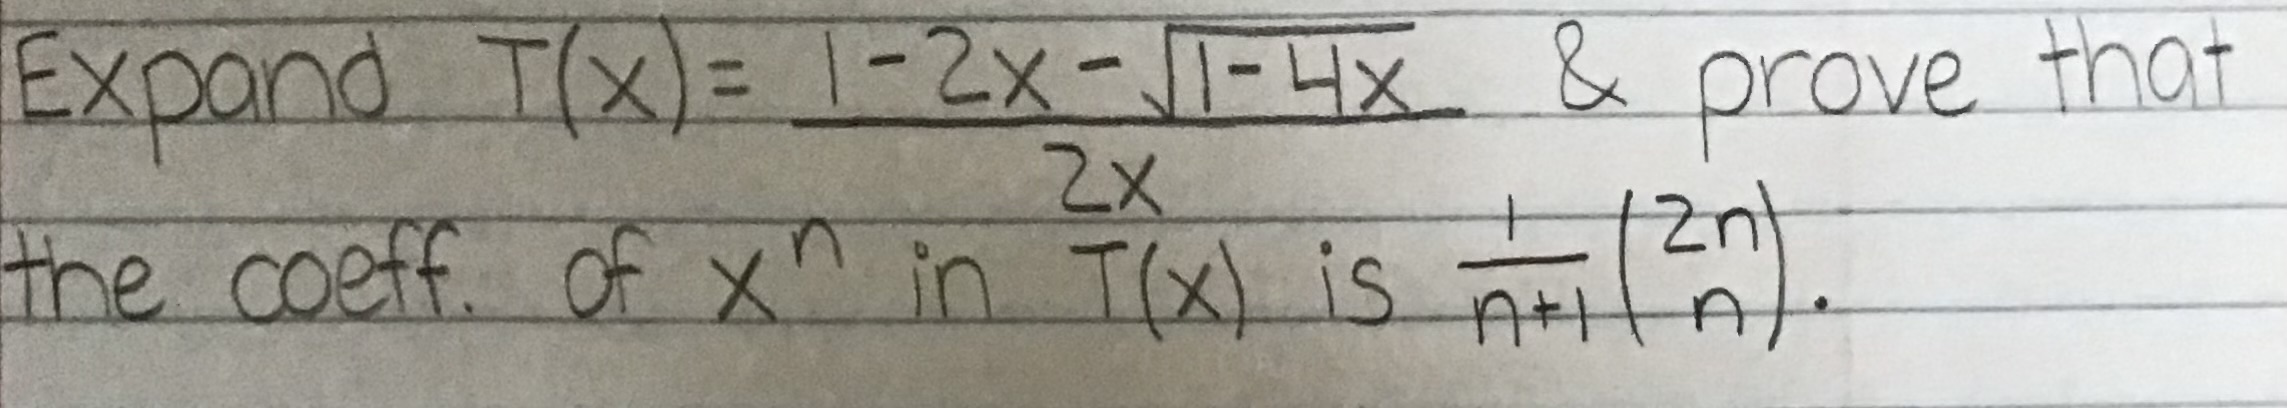 Expand T(x) = \frac{1-2x-\sqrt{1-4x}}{2x} & prove that
the coeff. of x^n in T(x) is \frac{1}{n+1} \binom{2n}{n}.